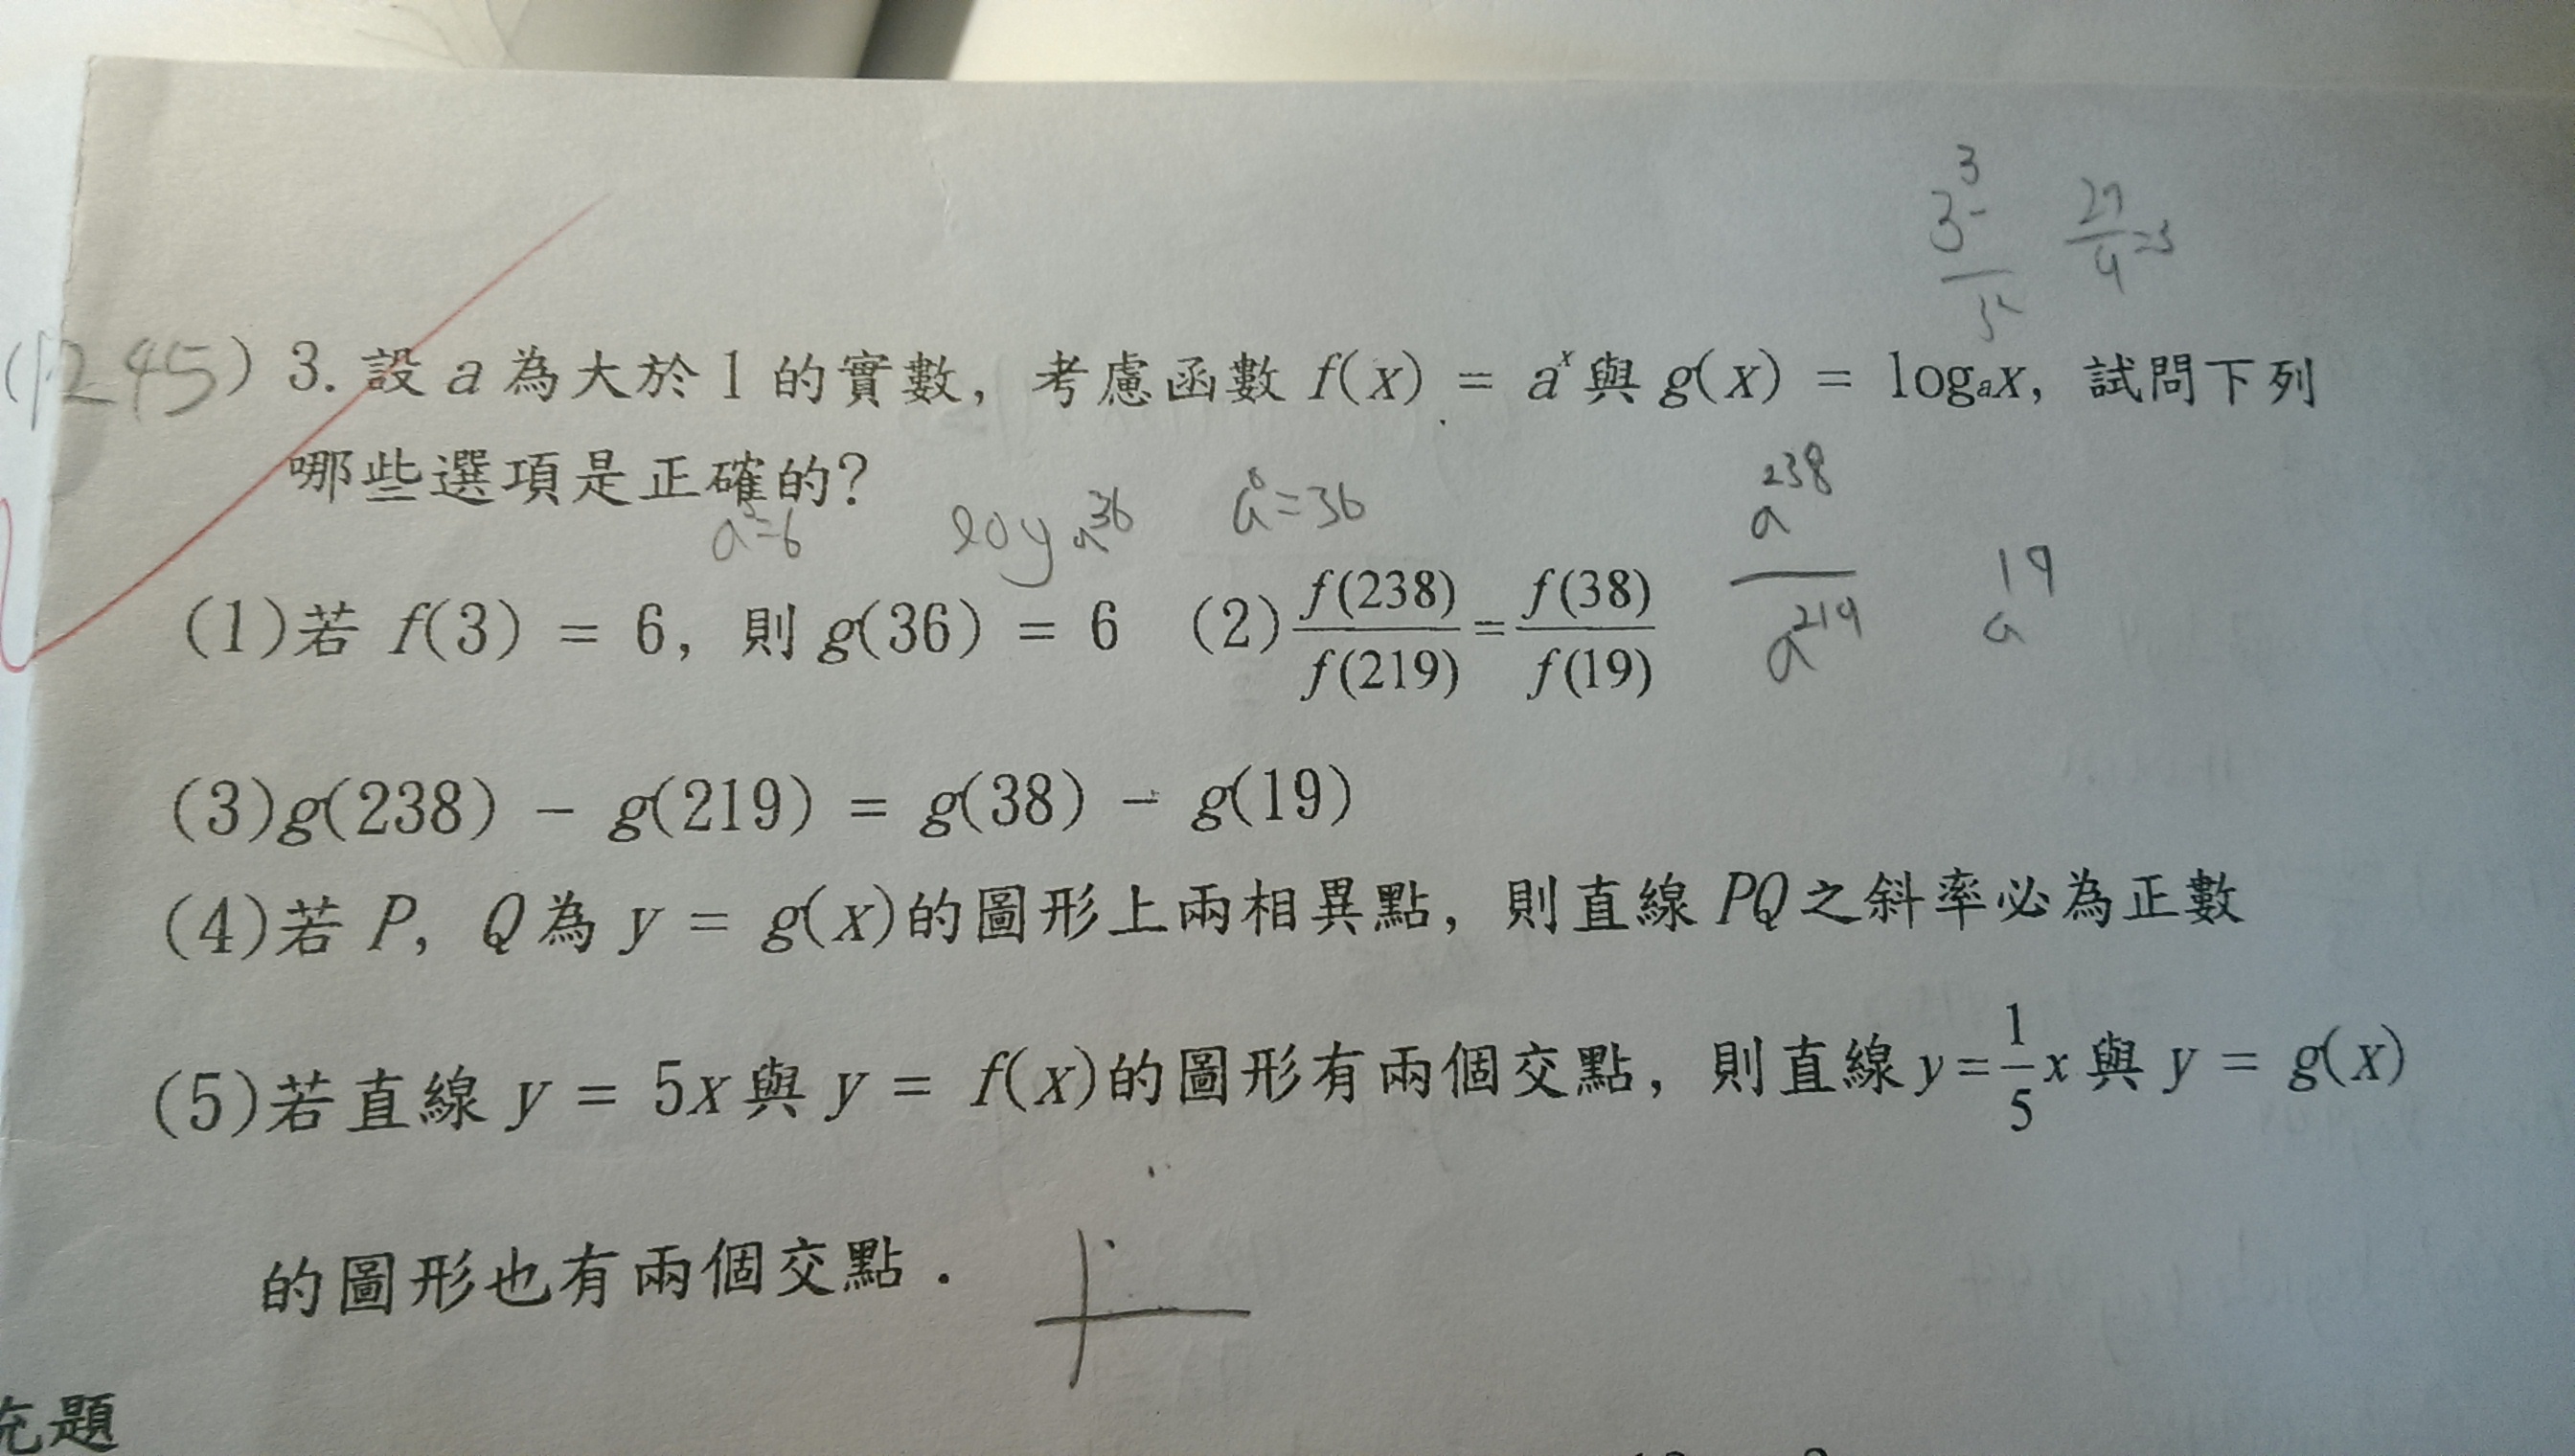 3
3
5
27/4=3
(1245) 3. 設 a 為大於 1 的實數, 考慮函數 f(x) = aˣ 與 g(x) = logₐx, 試問下列
哪些選項是正確的?
a³=6 log a 36 a⁶=36 a²³⁸
(1)若 f(3) = 6, 則 g(36) = 6 (2) f(238)/f(219) = f(38)/f(19) a²¹⁹ a¹⁹
(3)g(238) - g(219) = g(38) - g(19)
(4)若 P, Q 為 y = g(x)的圖形上兩相異點, 則直線 PQ 之斜率必為正數
(5)若直線 y = 5x 與 y = f(x)的圖形有兩個交點, 則直線 y = 1/5 x 與 y = g(x)
的圖形也有兩個交點.
充題